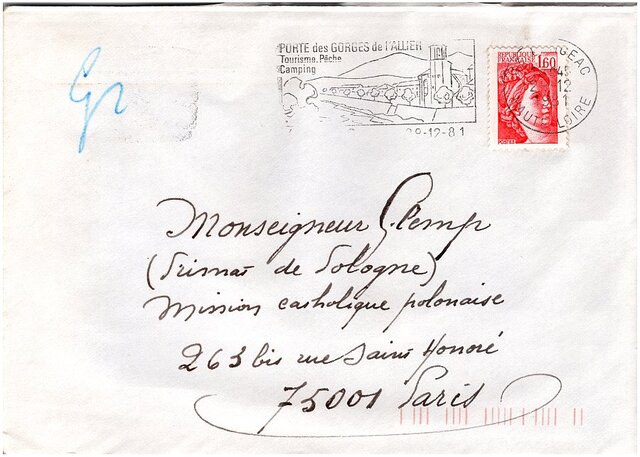 Gr
PORTE des GORGES de l'ALLIER
Tourisme. Pêche
Camping
29-12-81
REPUBLIQUE
FRANÇAISE
1,60
GEAC
12
HAUTE LOIRE
Monseigneur Glemp
(Primat de Pologne)
Mission catholique polonaise
263 bis rue Saint Honoré
75001 Paris